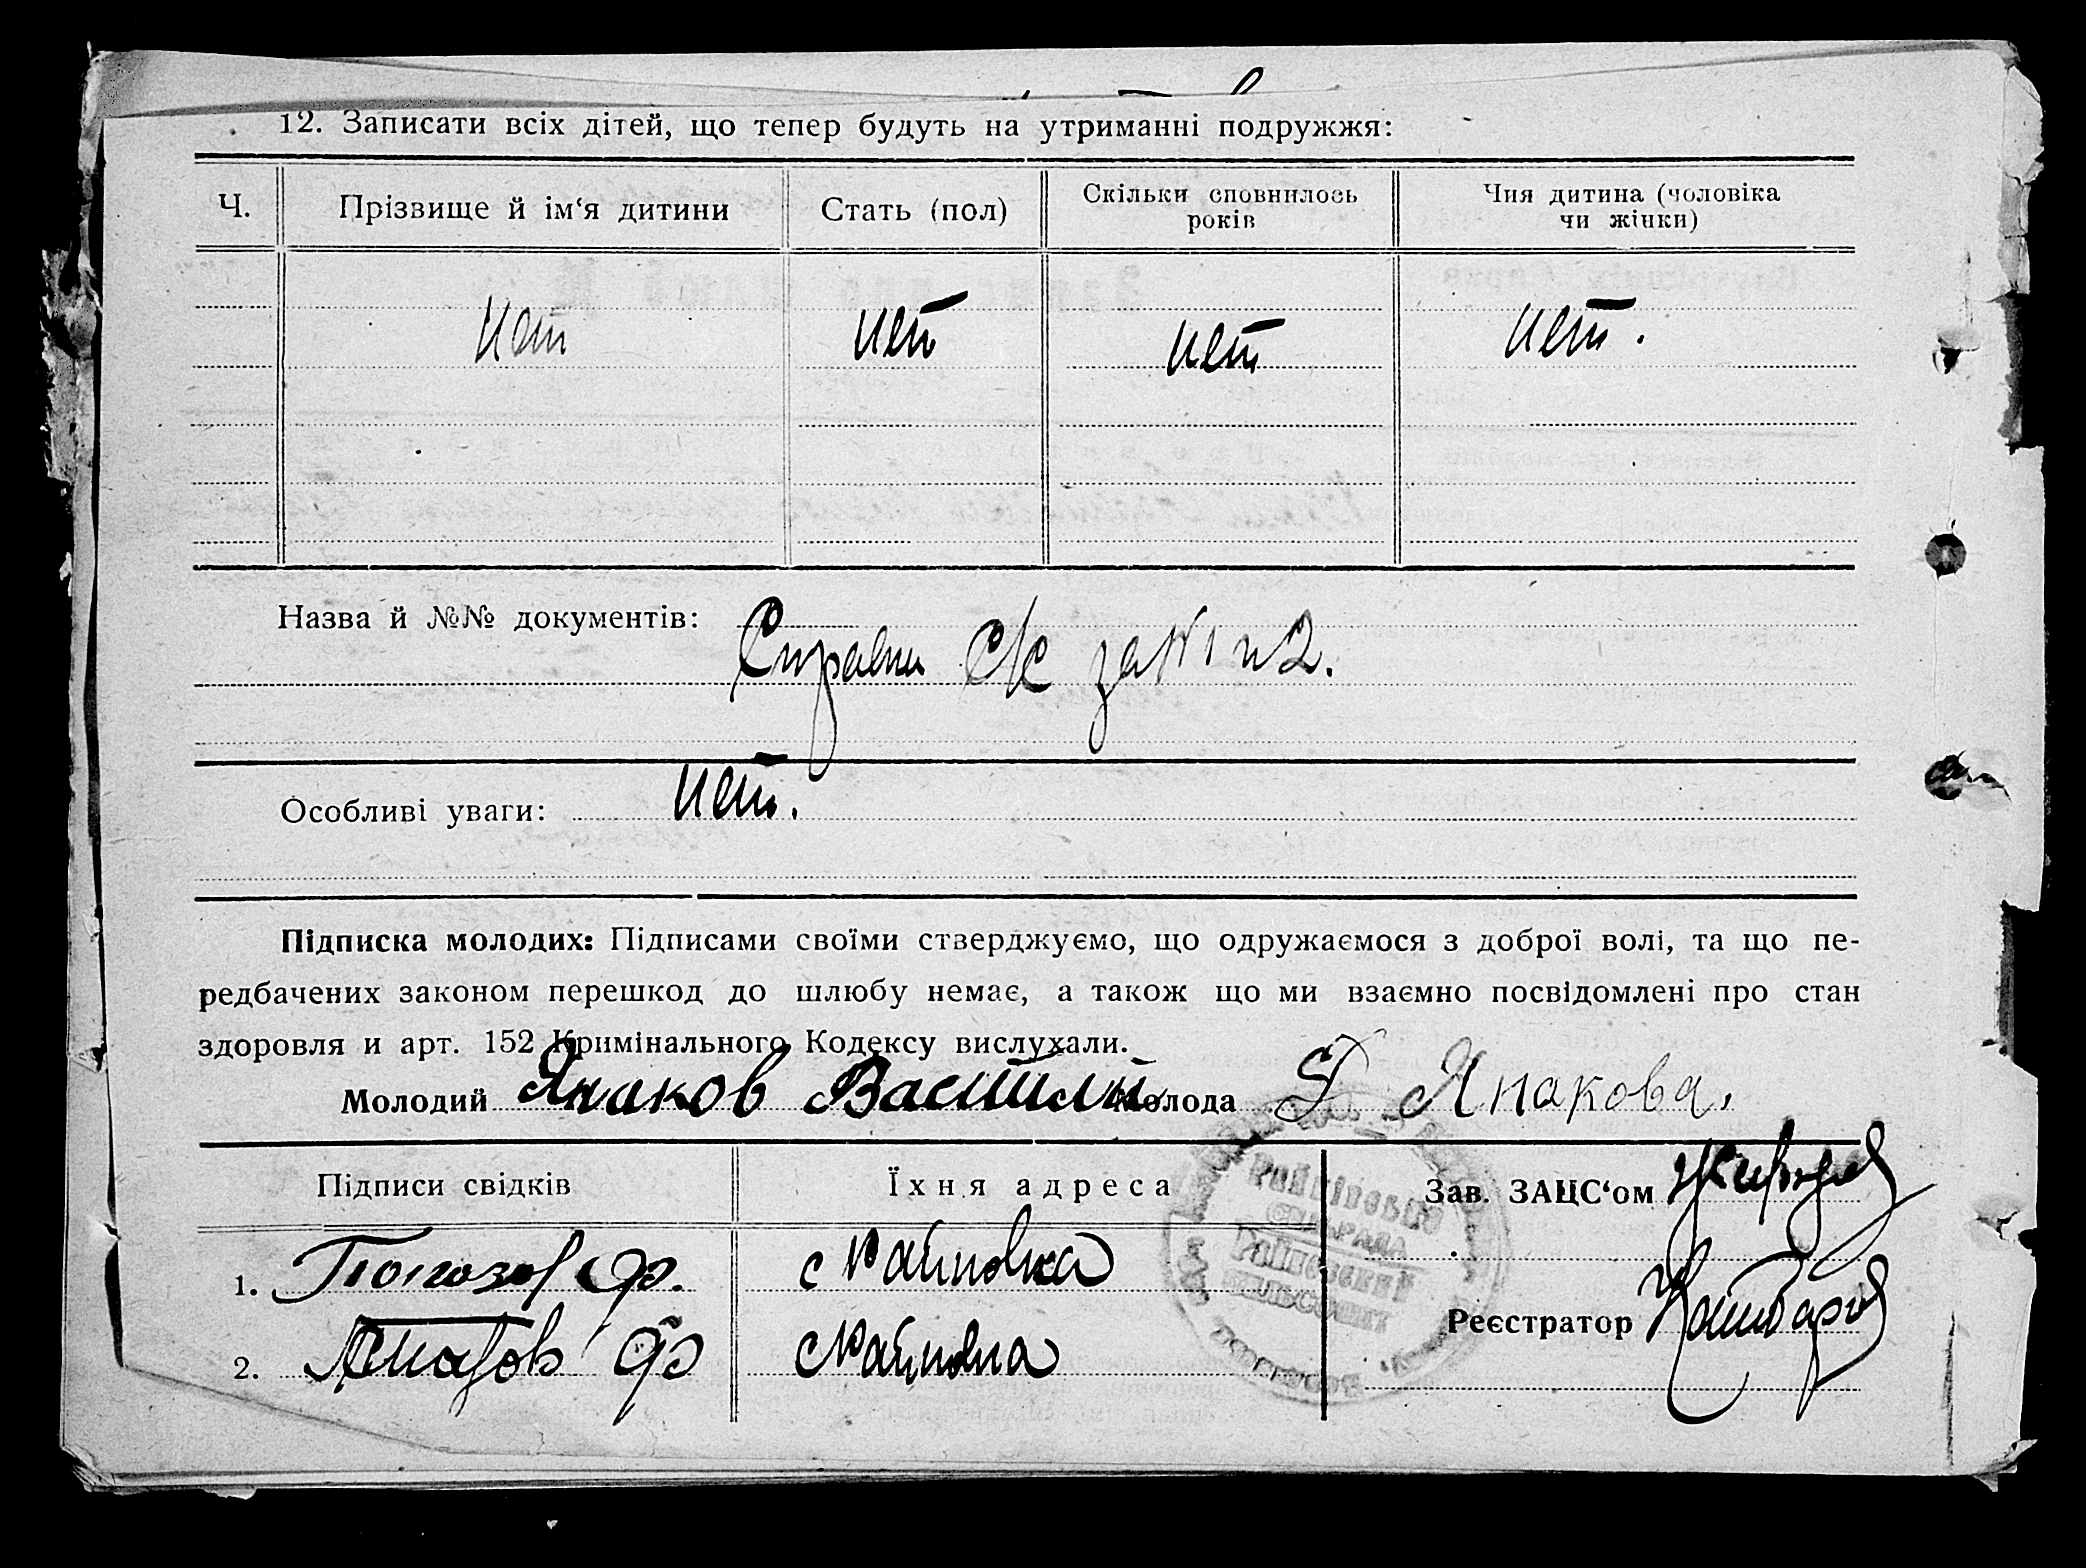 12. Записати всіх дітей, що тепер будуть на утриманні подружжя:
Ч. Прізвище й ім‘я дитини Стать (пол) Скільки сповнилось років Чия дитина (чоловіка чи жінки)
нет нет нет нет.
Назва й №№ документів:
Справки С/С за № 1 и 2.
Особливі уваги: нет.
Підписка молодих: Підписами своїми стверджуємо, що одружаємося з доброї волі, та що пе-
редбачених законом перешкод до шлюбу немає, а також що ми взаємно посвідомлені про стан
здоровля и арт. 152 Кримінального Кодексу вислухали.
Молодий Янаков Василий Молода Янакова.
Підписи свідків Їхня адреса Зав. ЗАЦС‘ом
1. с Райновка
Реєстратор
2. с Райновка
Райнівська
сільрада
Райновский
сельсовет